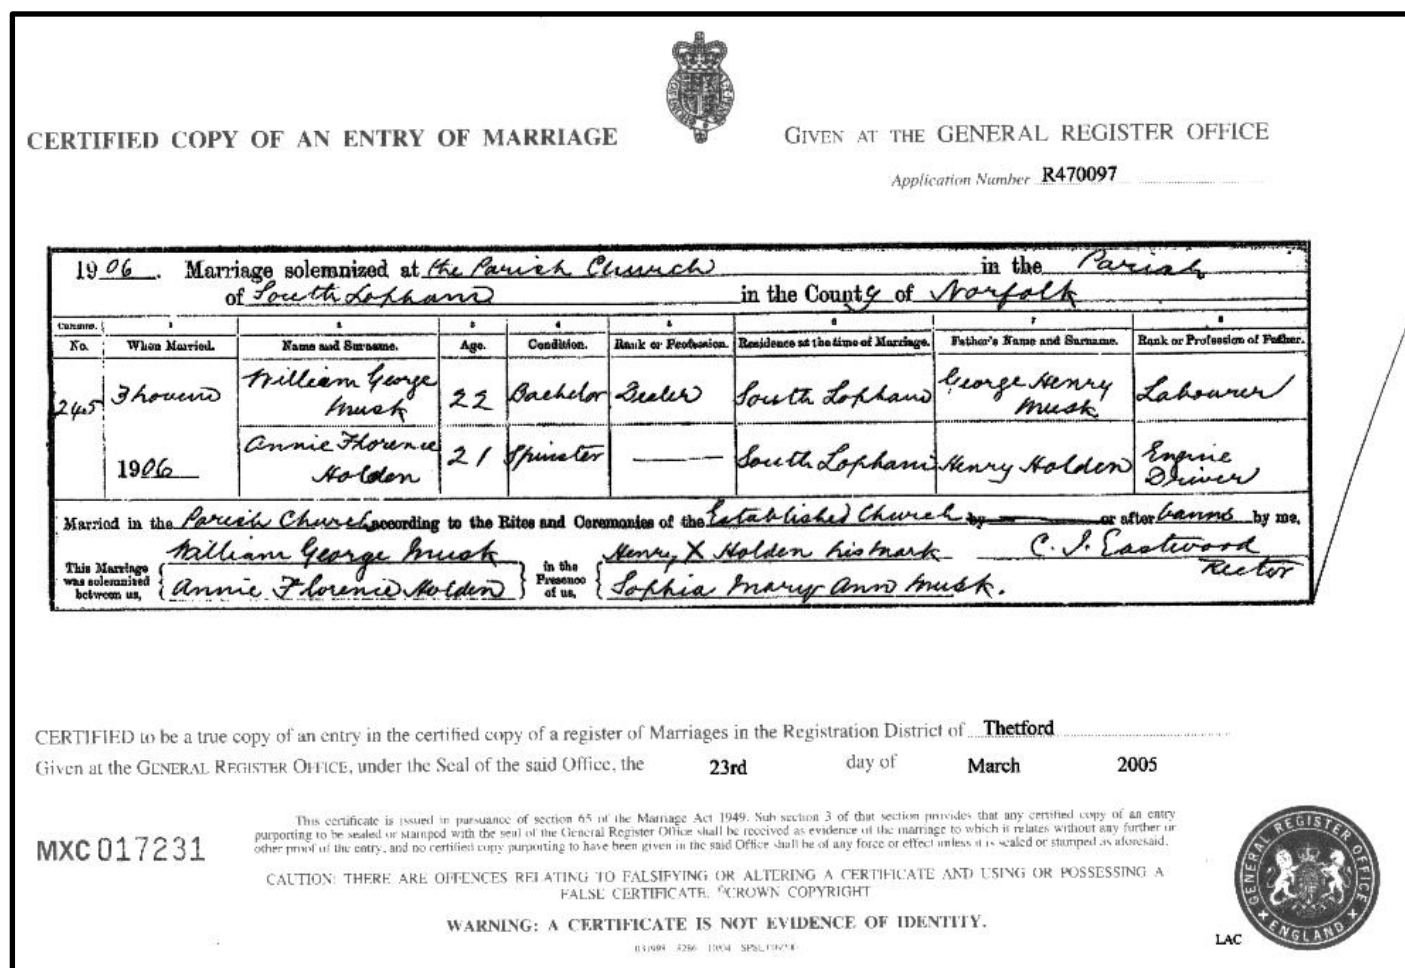 CERTIFIED COPY OF AN ENTRY OF MARRIAGE
GIVEN AT THE GENERAL REGISTER OFFICE
Application Number R470097
1906. Marriage solemnized at the Parish Church in the Parish
of South Lopham in the County of Norfolk
1 2 3 4 5 6 7 8
No. When Married. Name and Surname. Age. Condition. Rank or Profession. Residence at the time of Marriage. Father's Name and Surname. Rank or Profession of Father.
245 3 1906 William George Musk 22 Bachelor Dealer South Lopham George Henry Musk Labourer
Annie Florence Holden 21 Spinster South Lopham Henry Holden Engine Driver
Married in the Parish Church according to the Rites and Ceremonies of the Established Church by or after banns by me,
This Marriage was solemnized between us, William George Musk in the Presence of us, Henry X Holden his mark C. J. Eastwood
Annie Florence Holden Sophia Mary Ann Musk. Rector
CERTIFIED to be a true copy of an entry in the certified copy of a register of Marriages in the Registration District of Thetford
Given at the GENERAL REGISTER OFFICE, under the Seal of the said Office, the 23rd day of March 2005
This certificate is issued in pursuance of section 65 of the Marriage Act 1949. Sub section 3 of that section provides that any certified copy of an entry
purporting to be sealed or stamped with the seal of the General Register Office shall be received as evidence of the marriage to which it relates without any further or
other proof of the entry, and no certified copy purporting to have been given in the said Office shall be of any force or effect unless it is sealed or stamped as aforesaid.
MXC 017231
CAUTION: THERE ARE OFFENCES RELATING TO FALSIFYING OR ALTERING A CERTIFICATE AND USING OR POSSESSING A
FALSE CERTIFICATE. ©CROWN COPYRIGHT
WARNING: A CERTIFICATE IS NOT EVIDENCE OF IDENTITY.
GENERAL REGISTER OFFICE
ENGLAND
LAC